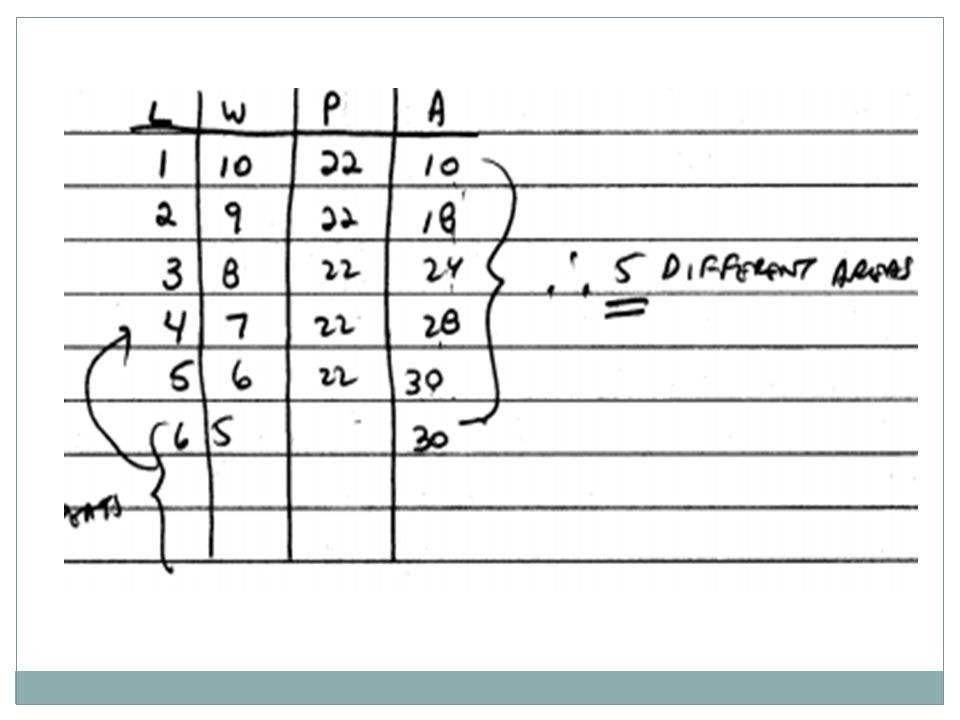 L W P A
1 10 22 10
2 9 22 18
3 8 22 24
4 7 22 28
5 6 22 30
6 5 30
∴ 5 DIFFERENT AREAS